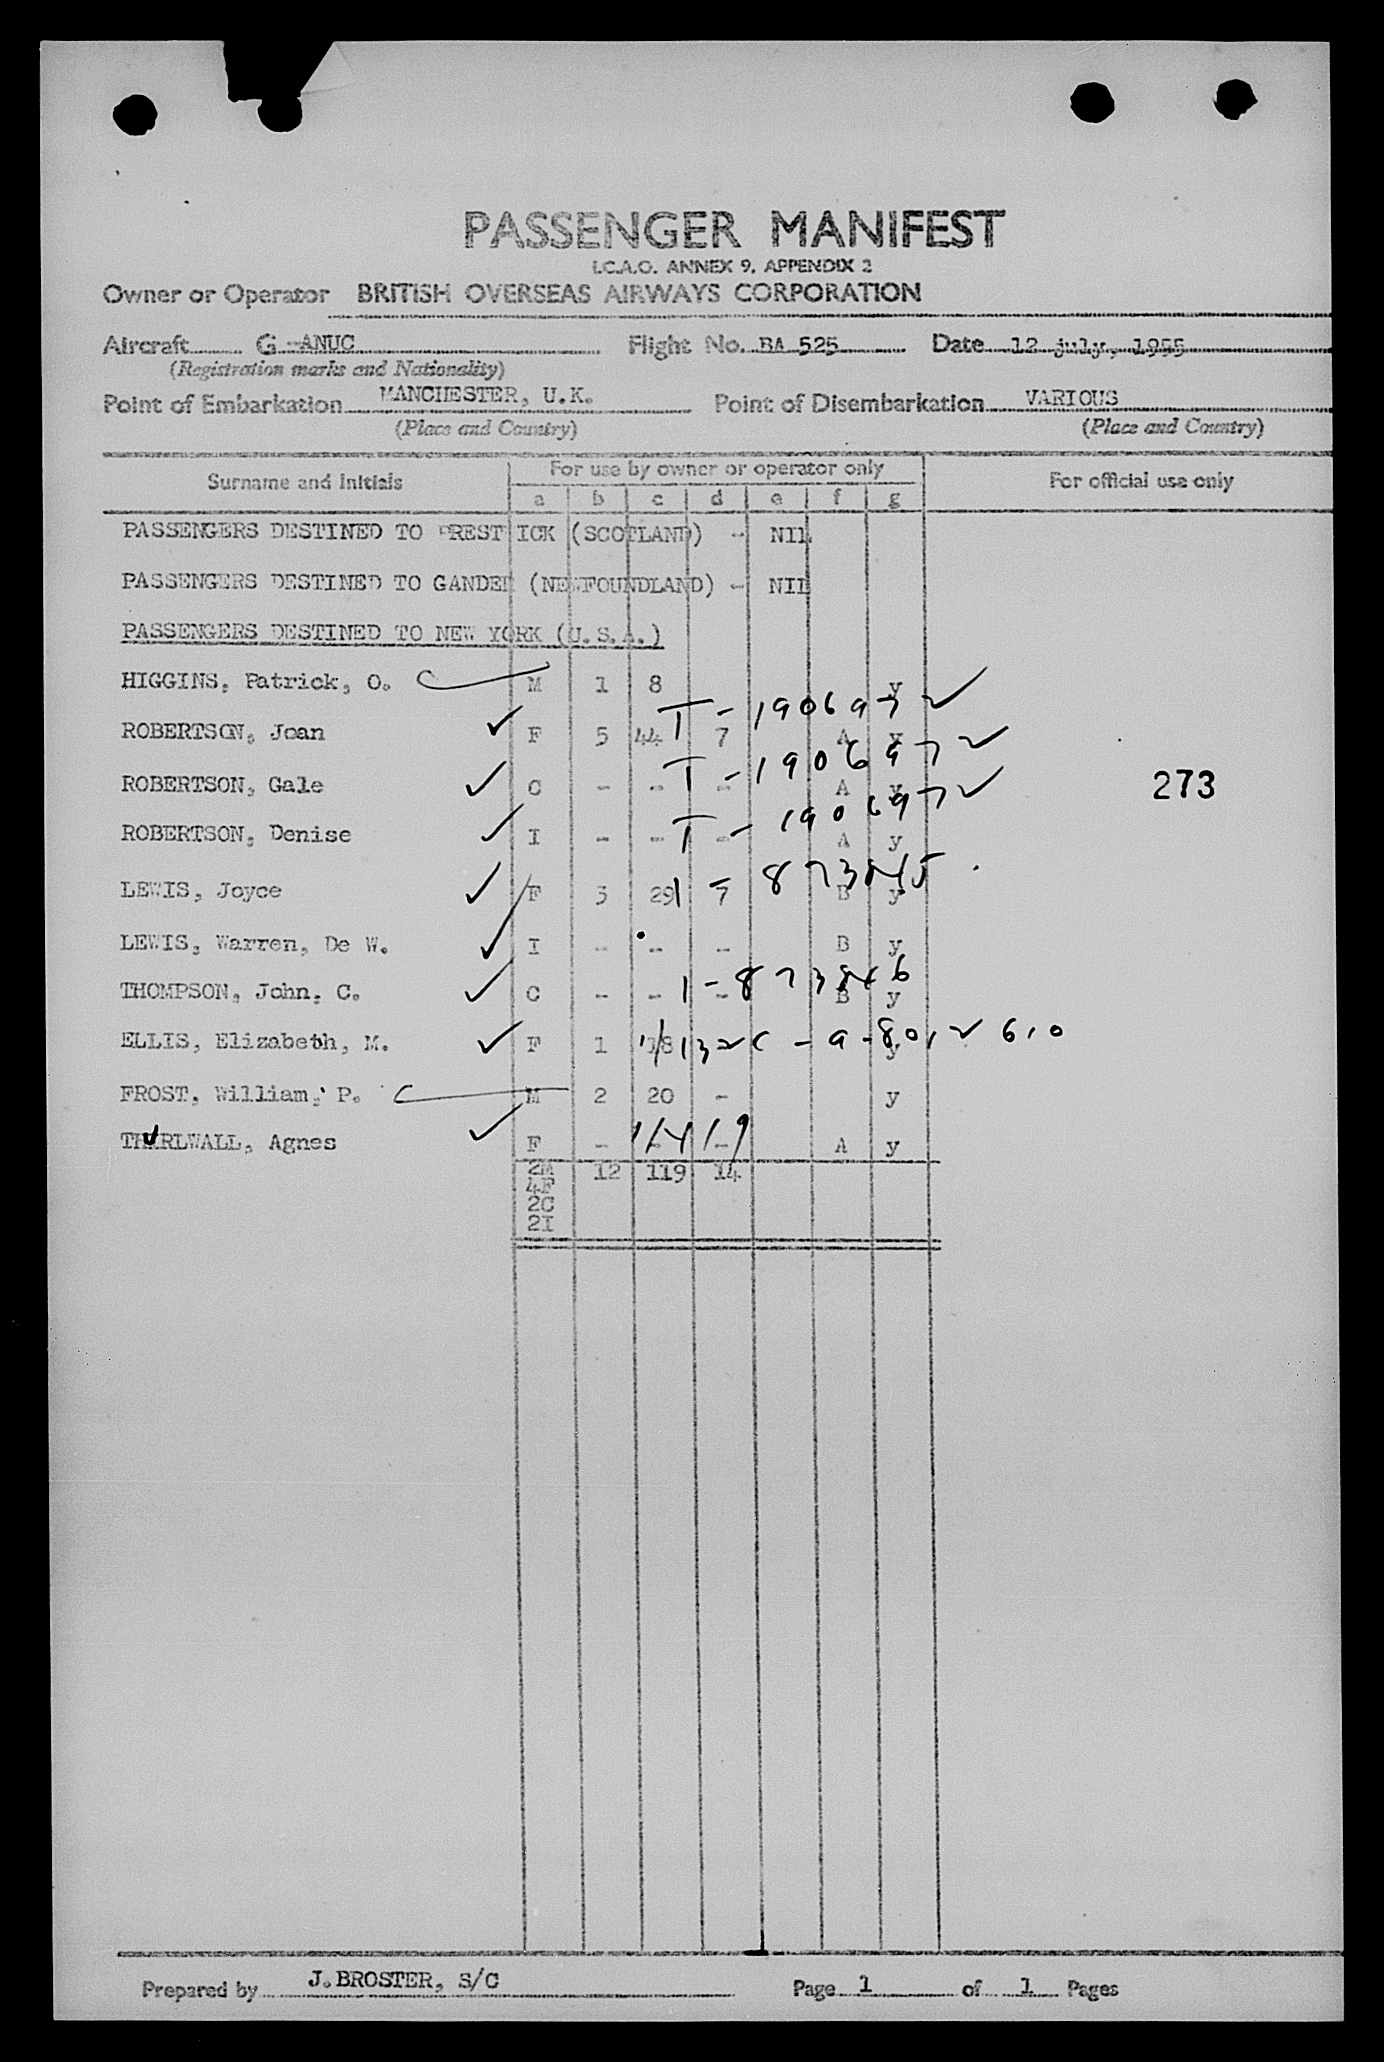 PASSENGER MANIFEST
I.C.A.O. ANNEX 9, APPENDIX 2
Owner or Operator BRITISH OVERSEAS AIRWAYS CORPORATION
Aircraft G-ANUC Flight No. BA 525 Date 12 july, 1955
(Registration marks and Nationality)
Point of Embarkation MANCHESTER, U.K. Point of Disembarkation VARIOUS
(Place and Country) (Place and Country)
Surname and Initials For use by owner or operator only For official use only
a b c d e f g
PASSENGERS DESTINED TO PRESTICK (SCOTLAND) - NIL
PASSENGERS DESTINED TO GANDER (NEWFOUNDLAND) - NIL
PASSENGERS DESTINED TO NEW YORK (U.S.A.)
HIGGINS, Patrick, O. M 1 8 y
T-190697 ✓
ROBERTSON, Joan ✓ F 5 44 7 A y
T-190697 ✓
ROBERTSON, Gale ✓ C - - - A y
T-190697 ✓
ROBERTSON, Denise ✓ I - - - A y
LEWIS, Joyce ✓ F 3 29 7 B y
LEWIS, Warren, De W. ✓ I - - - B y
THOMPSON, John, C. ✓ C - - - B y
ELLIS, Elizabeth, M. ✓ F 1 18 y
FROST, William, P. M 2 20 - y
THIRLWALL, Agnes ✓ F - - - A y
2M 12 119 14
4F
2C
2I
273
Prepared by J.BROSTER, S/C Page 1 of 1 Pages